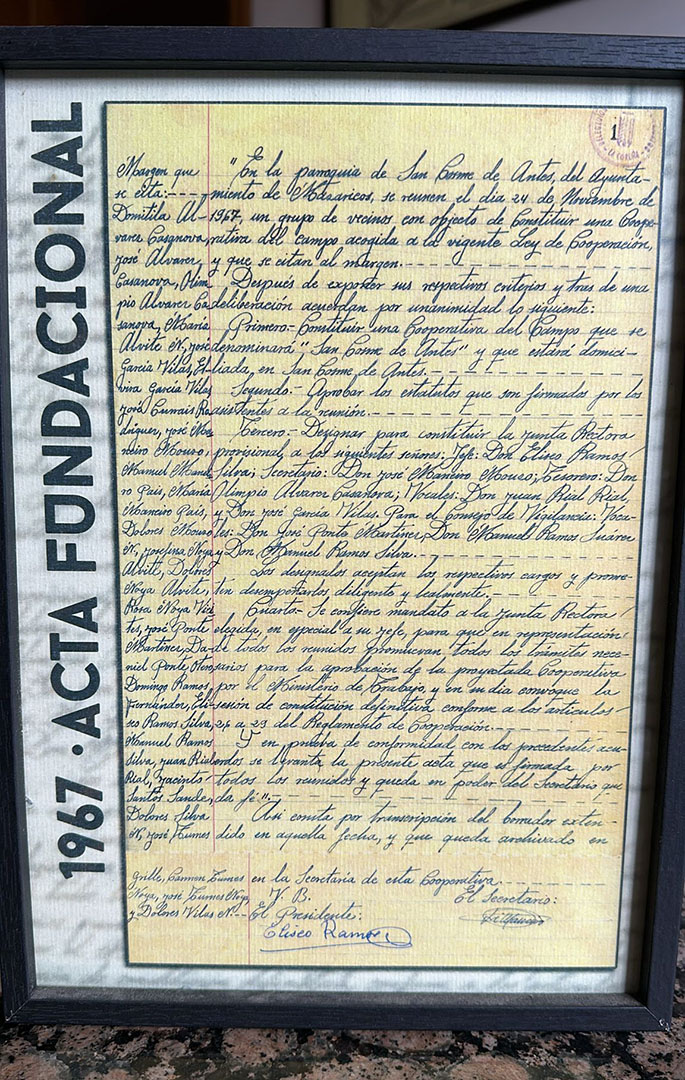 1967 · ACTA FUNDACIONAL
1
LA CORUÑA
Margen que
se cita:
Domitila Al-
varez Casanova,
José Alvarez
Casanova, Olim
pio Alvarez Ca
sanova, María
Alvite N, José
García Vilas, El
vira García Vilas
José Currais Ro
driguez, José Ma
neiro Mouro,
Manuel Manei
ro Pais, María
Maneiro Pais,
Dolores Mouro
N, Josefina Noya
Alvite, Dolores
Noya Alvite,
Rosa Noya Vei
tes, José Ponte
Martinez, Da-
niel Ponte Otero
Domingo Ramos
Fernández, Eli
seo Ramos Silva,
Manuel Ramos
Silva, Juan Rial
Rial, Jacinto
Santos Sande,
Dolores Silva
N, José Tumes
grille, Carmen Tumes
Noya, José Tumes Noya,
y Dolores Vilas N.-
"En la parroquia de San Cosme de Antes, del Ayunta-
miento de Mazaricos, se reunen el dia 24 de Noviembre de
1967, un grupo de vecinos con objecto de Constituir una Coope-
rativa del campo acogida a la vigente Ley de Cooperación,
y que se citan al margen.
Después de exponer sus respectivos criterios y tras de una
deliberación acuerdan por unanimidad lo siguiente:
Primero.- Constituir una Cooperativa del Campo que se
denominará "San Cosme de Antes" y que estará domici-
liada, en San Cosme de Antes.
Segundo.- Aprobar los estatutos que son firmados por los
asistentes a la reunión.
Tercero.- Designar para constituir la Junta Rectora
provisional, a los siguientes señores: Jefe: Don Eliseo Ramos
Silva; Secretario: Don José Maneiro Mouro; Tesorero: Don
Olimpio Alvarez Casanova; Vocales: Don Juan Rial Rial,
y Don José García Vilas. Para el Consejo de Vigilancia: Voca-
les: Don José Ponte Martinez, Don Manuel Ramos Suárez
y Don Manuel Ramos Silva.
Los designados aceptan los respectivos cargos y prome-
ten desempeñarlos diligente y lealmente.
Cuarto.- Se confiere mandato a la Junta Rectora
elegida, en especial a su Jefe, para que en representación
de todos los reunidos promuevan todos los trámites nece-
sarios para la aprobación de la proyectada Cooperativa
por el Ministerio de Trabajo, y en su dia convoque la
sesión de constitución definitiva conforme a los articulos
24 a 29 del Reglamento de Cooperación.
Y en prueba de conformidad con los precedentes acu
erdos se levanta la presente acta que es firmada por
todos los reunidos y queda en poder del Secretario que
da fé".
Asi consta por transcripción del borrador exten-
dido en aquella fecha, y que queda archivado en
en la Secretaria de esta Cooperativa.
V. B.
El Presidente:
Eliseo Ramos
El Secretario: